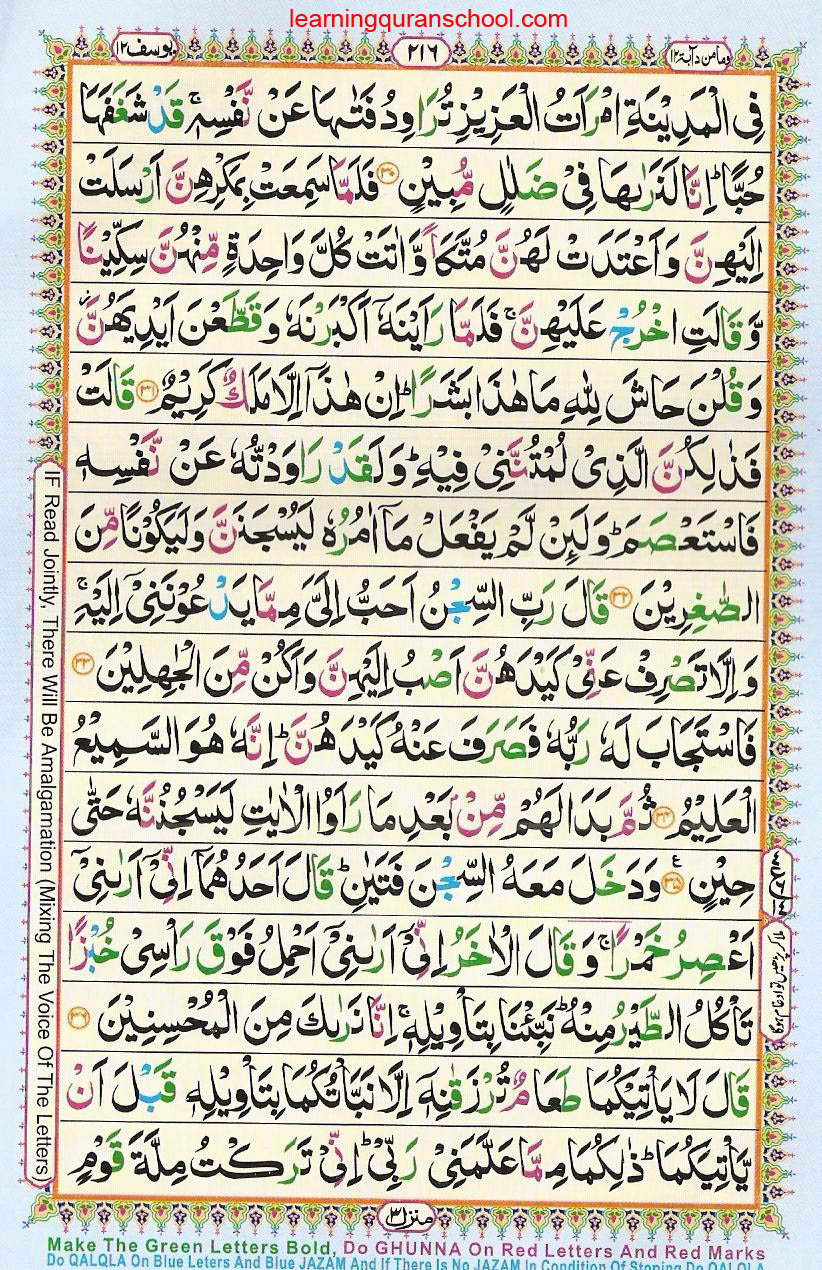 learningquranschool.com
يوسف ١٢
٢١٦
ومامن دآبة ١٢
فِى الْمَدِيْنَةِ امْرَاَتُ الْعَزِيْزِ تُرَاوِدُ فَتٰىهَا عَنْ نَّفْسِهٖ ۚ قَدْ شَغَفَهَا
حُبًّا ؕ اِنَّا لَنَرٰىهَا فِىْ ضَلٰلٍ مُّبِيْنٍ ﴿۳۰﴾ فَلَمَّا سَمِعَتْ بِمَكْرِهِنَّ اَرْسَلَتْ
اِلَيْهِنَّ وَاَعْتَدَتْ لَهُنَّ مُتَّكَاً وَّاٰتَتْ كُلَّ وَاحِدَةٍ مِّنْهُنَّ سِكِّيْنًا
وَّقَالَتِ اخْرُجْ عَلَيْهِنَّ ۚ فَلَمَّا رَاَيْنَهٗۤ اَكْبَرْنَهٗ وَقَطَّعْنَ اَيْدِيَهُنَّ ؗ
وَقُلْنَ حَاشَ لِلّٰهِ مَا هٰذَا بَشَرًا ؕ اِنْ هٰذَاۤ اِلَّا مَلَكٌ كَرِيْمٌ ﴿۳۱﴾ قَالَتْ
فَذٰلِكُنَّ الَّذِىْ لُمْتُنَّنِىْ فِيْهِ ؕ وَلَقَدْ رَاوَدْتُّهٗ عَنْ نَّفْسِهٖ
فَاسْتَعْصَمَ ؕ وَلَئِنْ لَّمْ يَفْعَلْ مَاۤ اٰمُرُهٗ لَيُسْجَنَنَّ وَلَيَكُوْنًا مِّنَ
الصّٰغِرِيْنَ ﴿۳۲﴾ قَالَ رَبِّ السِّجْنُ اَحَبُّ اِلَىَّ مِمَّا يَدْعُوْنَنِىْۤ اِلَيْهِ ۚ
وَاِلَّا تَصْرِفْ عَنِّىْ كَيْدَهُنَّ اَصْبُ اِلَيْهِنَّ وَاَكُنْ مِّنَ الْجٰهِلِيْنَ ﴿۳۳﴾
فَاسْتَجَابَ لَهٗ رَبُّهٗ فَصَرَفَ عَنْهُ كَيْدَهُنَّ ؕ اِنَّهٗ هُوَ السَّمِيْعُ
الْعَلِيْمُ ﴿۳۴﴾ ثُمَّ بَدَا لَهُمْ مِّنْۢ بَعْدِ مَا رَاَوُا الْاٰيٰتِ لَيَسْجُنُنَّهٗ حَتّٰى
حِيْنٍ ﴿۳۵﴾ ع وَدَخَلَ مَعَهُ السِّجْنَ فَتَيٰنِ ؕ قَالَ اَحَدُهُمَاۤ اِنِّىْۤ اَرٰىنِىْۤ
اَعْصِرُ خَمْرًا ۚ وَقَالَ الْاٰخَرُ اِنِّىْۤ اَرٰىنِىْۤ اَحْمِلُ فَوْقَ رَاْسِىْ خُبْزًا
تَاْكُلُ الطَّيْرُ مِنْهُ ؕ نَبِّئْنَا بِتَاْوِيْلِهٖ ۚ اِنَّا نَرٰىكَ مِنَ الْمُحْسِنِيْنَ ﴿۳۶﴾
قَالَ لَا يَاْتِيْكُمَا طَعَامٌ تُرْزَقٰنِهٖۤ اِلَّا نَبَّاْتُكُمَا بِتَاْوِيْلِهٖ قَبْلَ اَنْ
يَّاْتِيَكُمَا ؕ ذٰلِكُمَا مِمَّا عَلَّمَنِىْ رَبِّىْ ؕ اِنِّىْ تَرَكْتُ مِلَّةَ قَوْمٍ
IF Read Jointly, There Will Be Amalgamation (Mixing The Voice Of The Letters)
ملا کر پڑھیں تو ادغام ہوگا
منزل ٣
Make The Green Letters Bold, Do GHUNNA On Red Letters And Red Marks
Do QALQLA On Blue Leters And Blue JAZAM And If There Is No JAZAM In Condition Of Stoping Do QALQLA